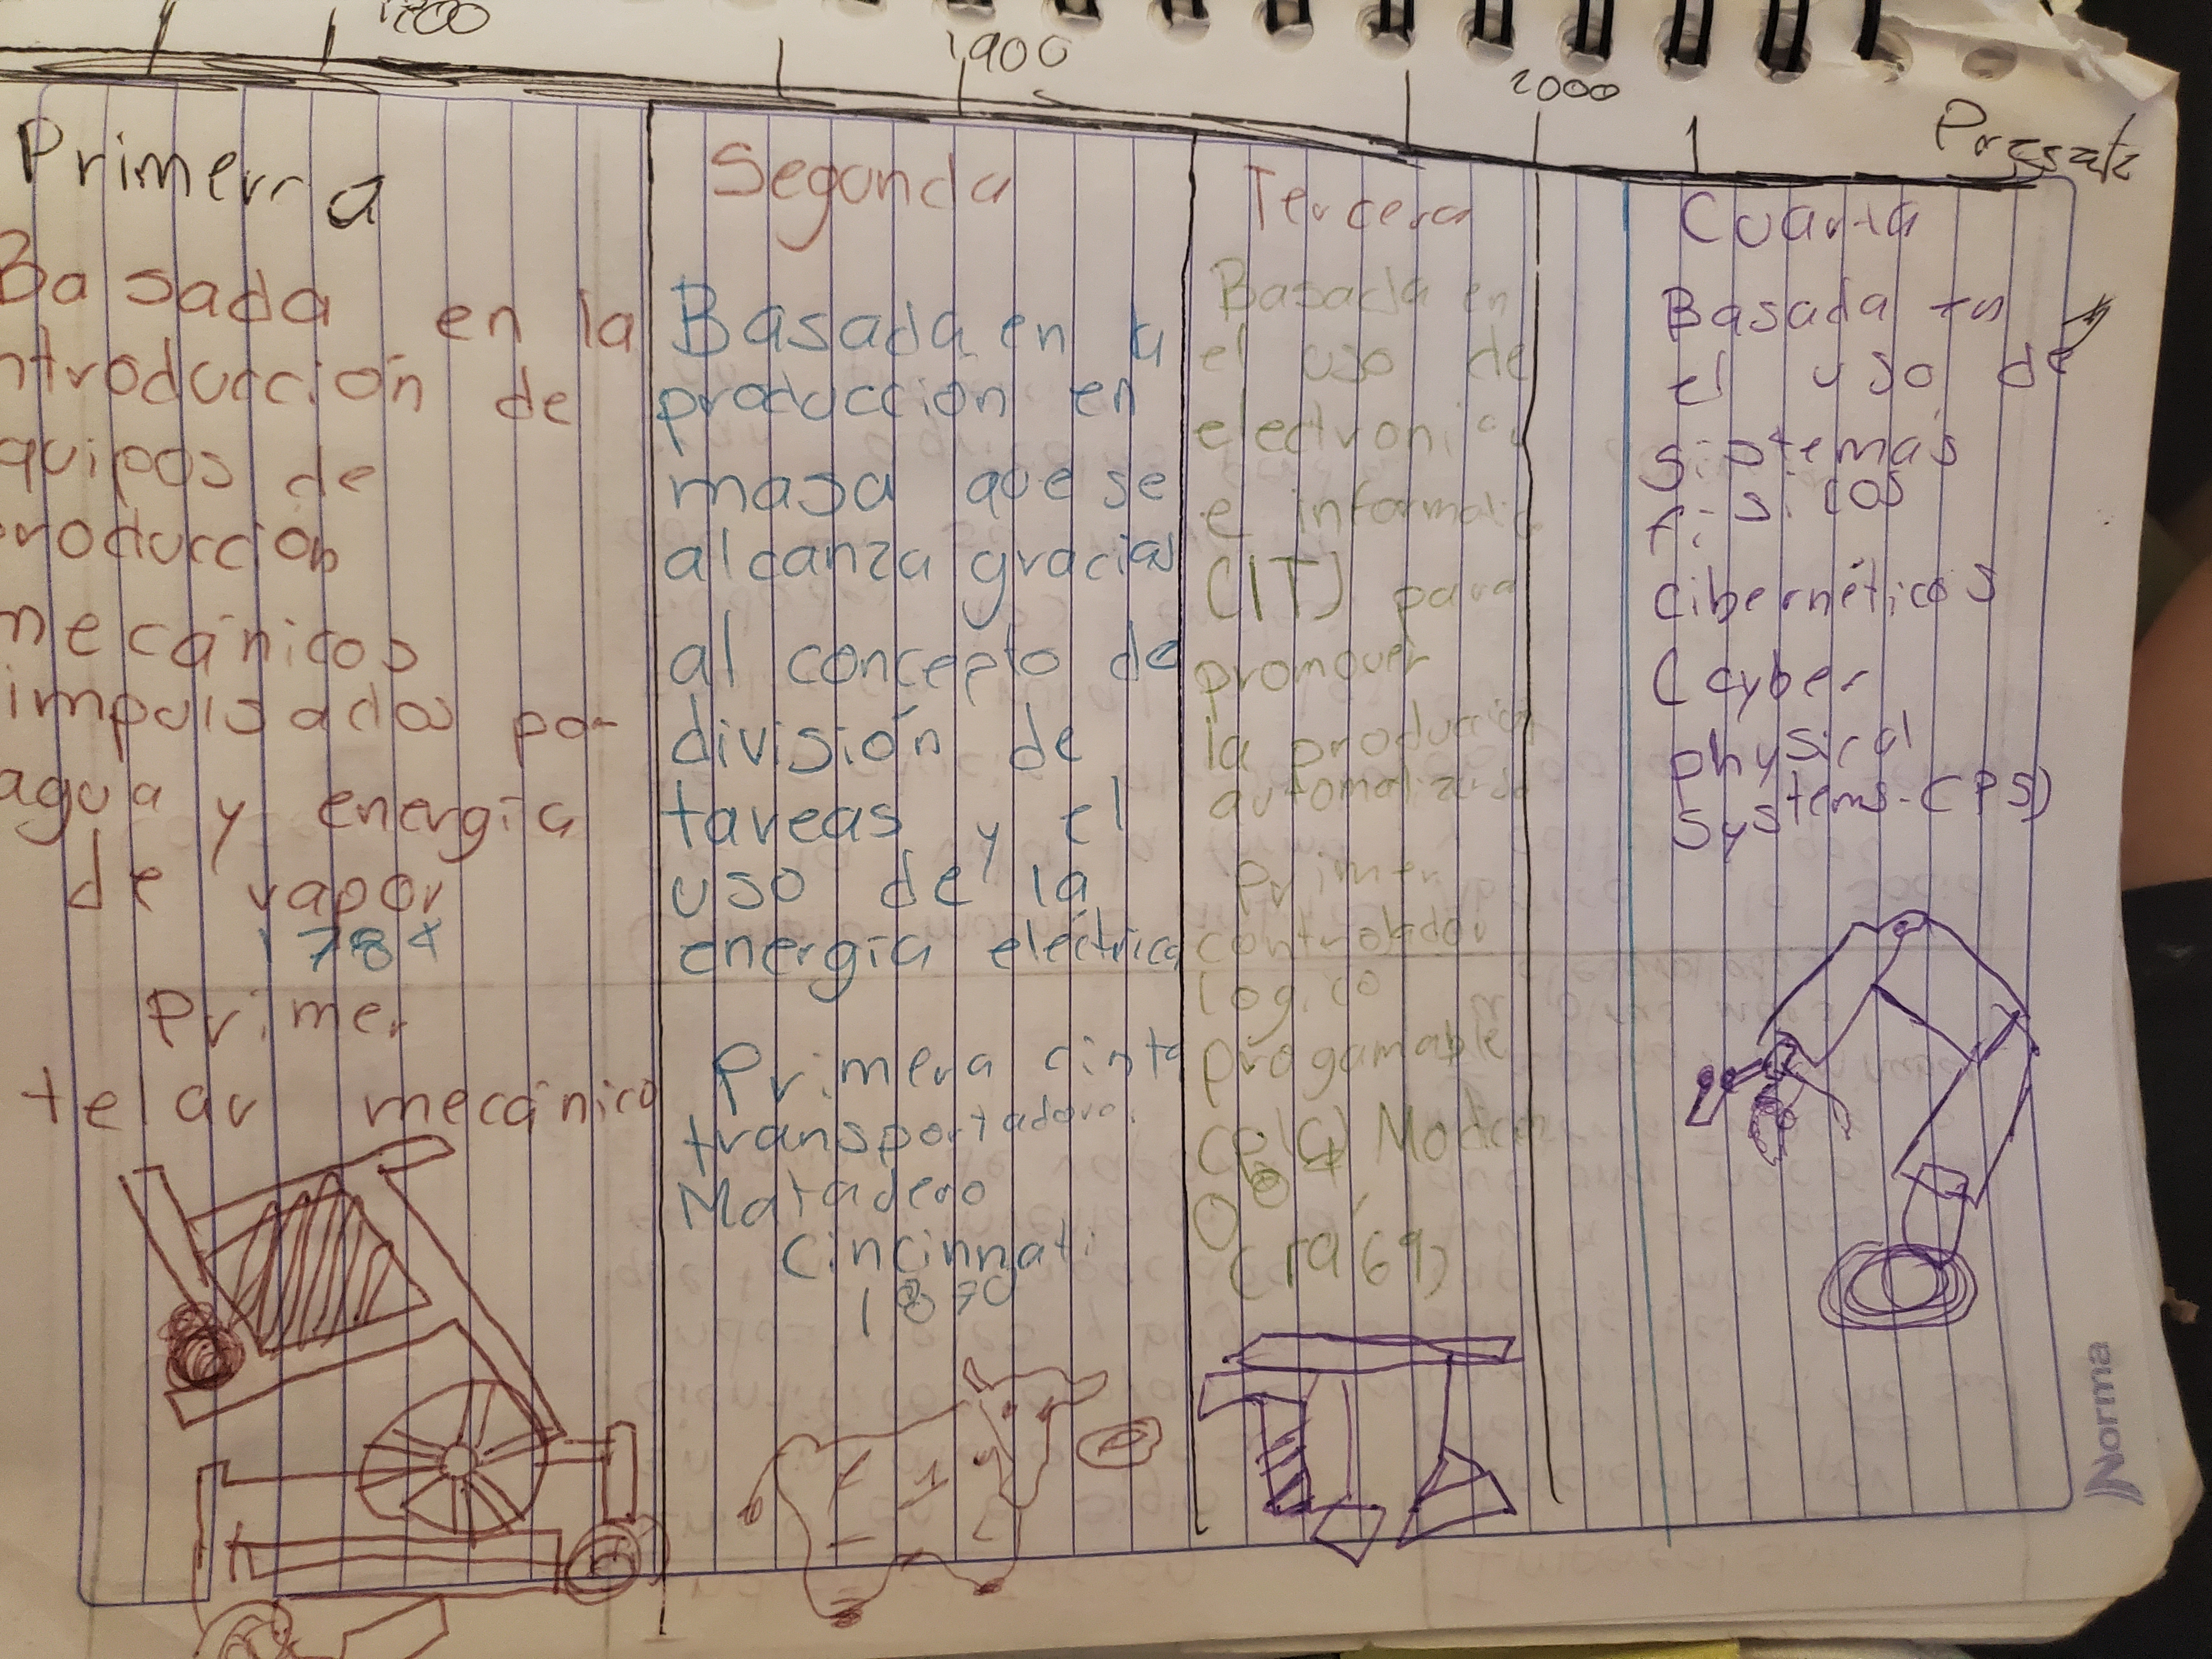 1800
1900
2000
Primera
Basada en la
ntroducción de
quipos de
producción
mecánicos
impulsados por
agua y energía
de vapor
1784
Primer
telar mecánico
Segunda
Basada en la
producción en
masa que se
alcanza gracias
al concepto de
división de
tareas y el
uso de la
energía eléctrica
Primera cinta
transportadora.
Matadero
Cincinnati
1870
Tercera
Basada en
el uso de
electronica
e informatic
(IT) para
promover
la producción
automatizada
Primer
controlador
logico
progamable
Modicon
(1969)
Cuarta
Basada en
el uso de
sistemas
físicos
cibernéticos
(cyber
physical
systems-CPS)
Norma